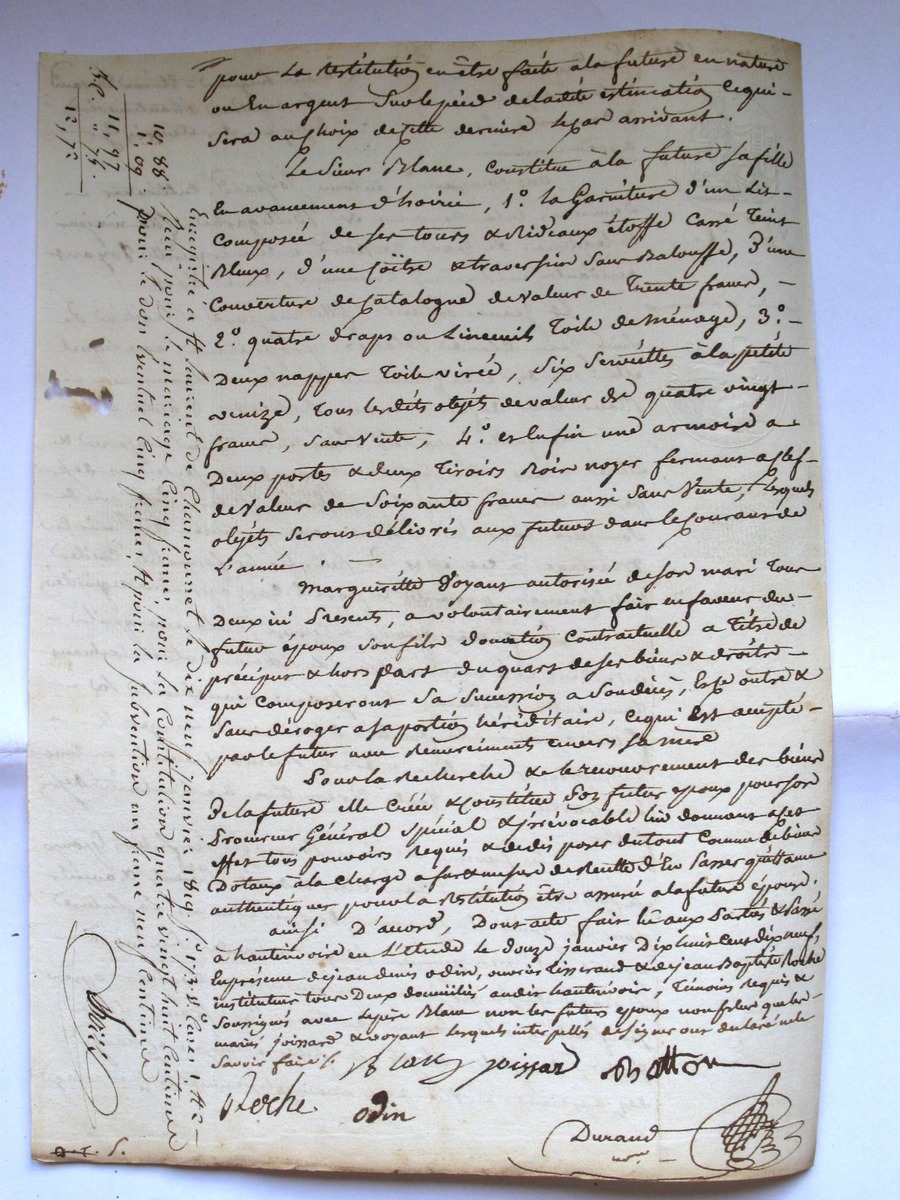 pour la Restitution en être faite à la future en nature
ou En argent Sur le pied de ladite estimation Ce qui
Sera au choix de cette derniere le cas arrivant.
Le Sieur Blanc, Constitue à la future Sa fille
En avancement d'hoirie, 1º. la Garniture d'un Lit
Composée de ses tours & Rideaux étoffe Carré Teint
Bleux, d'une & traversier Sans Balouffe, d'une
Couverture de Catalogne de valeur de Trente francs,
2º. quatre draps ou Linceuils Toile de Ménage, 3º.
Deux nappes Toile virée, Six Serviettes à la petite
venize, tous lesdits objets de valeur de quatre vingt
francs, Sans Vente, 4º. et Enfin une armoire a
Deux portes & deux Tiroirs Bois noyer fermant a Clef
de Valeur de Soixante francs aussi Sans Vente, Lesquels
objets Seront délivrés aux futurs dans le Courant de
L'année
Margueritte Voyant autorisée de son mari Tous
Deux ici Presents, a volontairement fait en faveur du
futur époux Son fils donation Contractuelle a Titre de
préciput & hors part du quart de ses biens & droits
qui Composeront Sa Sucession a Son décès, Et ce outre &
Sans déroger a Sa portion héréditaire, Ce qui Est accepté
par le futur avec Remerciments envers Sa mere
Pour la Recherche & le recouvrement des biens
De la future elle Crée & Constitue Son futur epoux pour Son
Procureur Général Spécial & irrévocable lui donnant a cet
effet tous pouvoirs Requis & de disposer du tout Comme de biens
Dotaux à la charge a fur & mesure de Recette d'En Passer quittance
authentique pour la Restitution être assurée à la future épouse.
ainsi D'accord, Dont acte fait lu aux Parties & Passé
à hauterivoire en L'Etude le Douze janvier Dix huit Cent Dix neuf,
En présence de jean denis odin, ouvrier Tisserand & de jean Baptiste Roche
instituteur tous Deux domiciliés audit hauterivoire, Témoins Requis &
Soussignés avec Le père Blanc non les futurs époux non plus que les
mariés joissard & voyant lesquels interpellés de signer ont déclaré ne le
Savoir faire
Blanc joissar
Roche odin
Durand
Enregistré a St Laurent de Chamousset le dix neuf janvier 1819. fº 173 Vº Case 1
Reçu pour le mariage Cinq francs, pour la Constitution quatre vingt huit Centimes
pour le don Eventuel Cinq francs Et pour la Subvention un franc neuf Centimes
10, 88.
1, 09
11, 97
12, 72